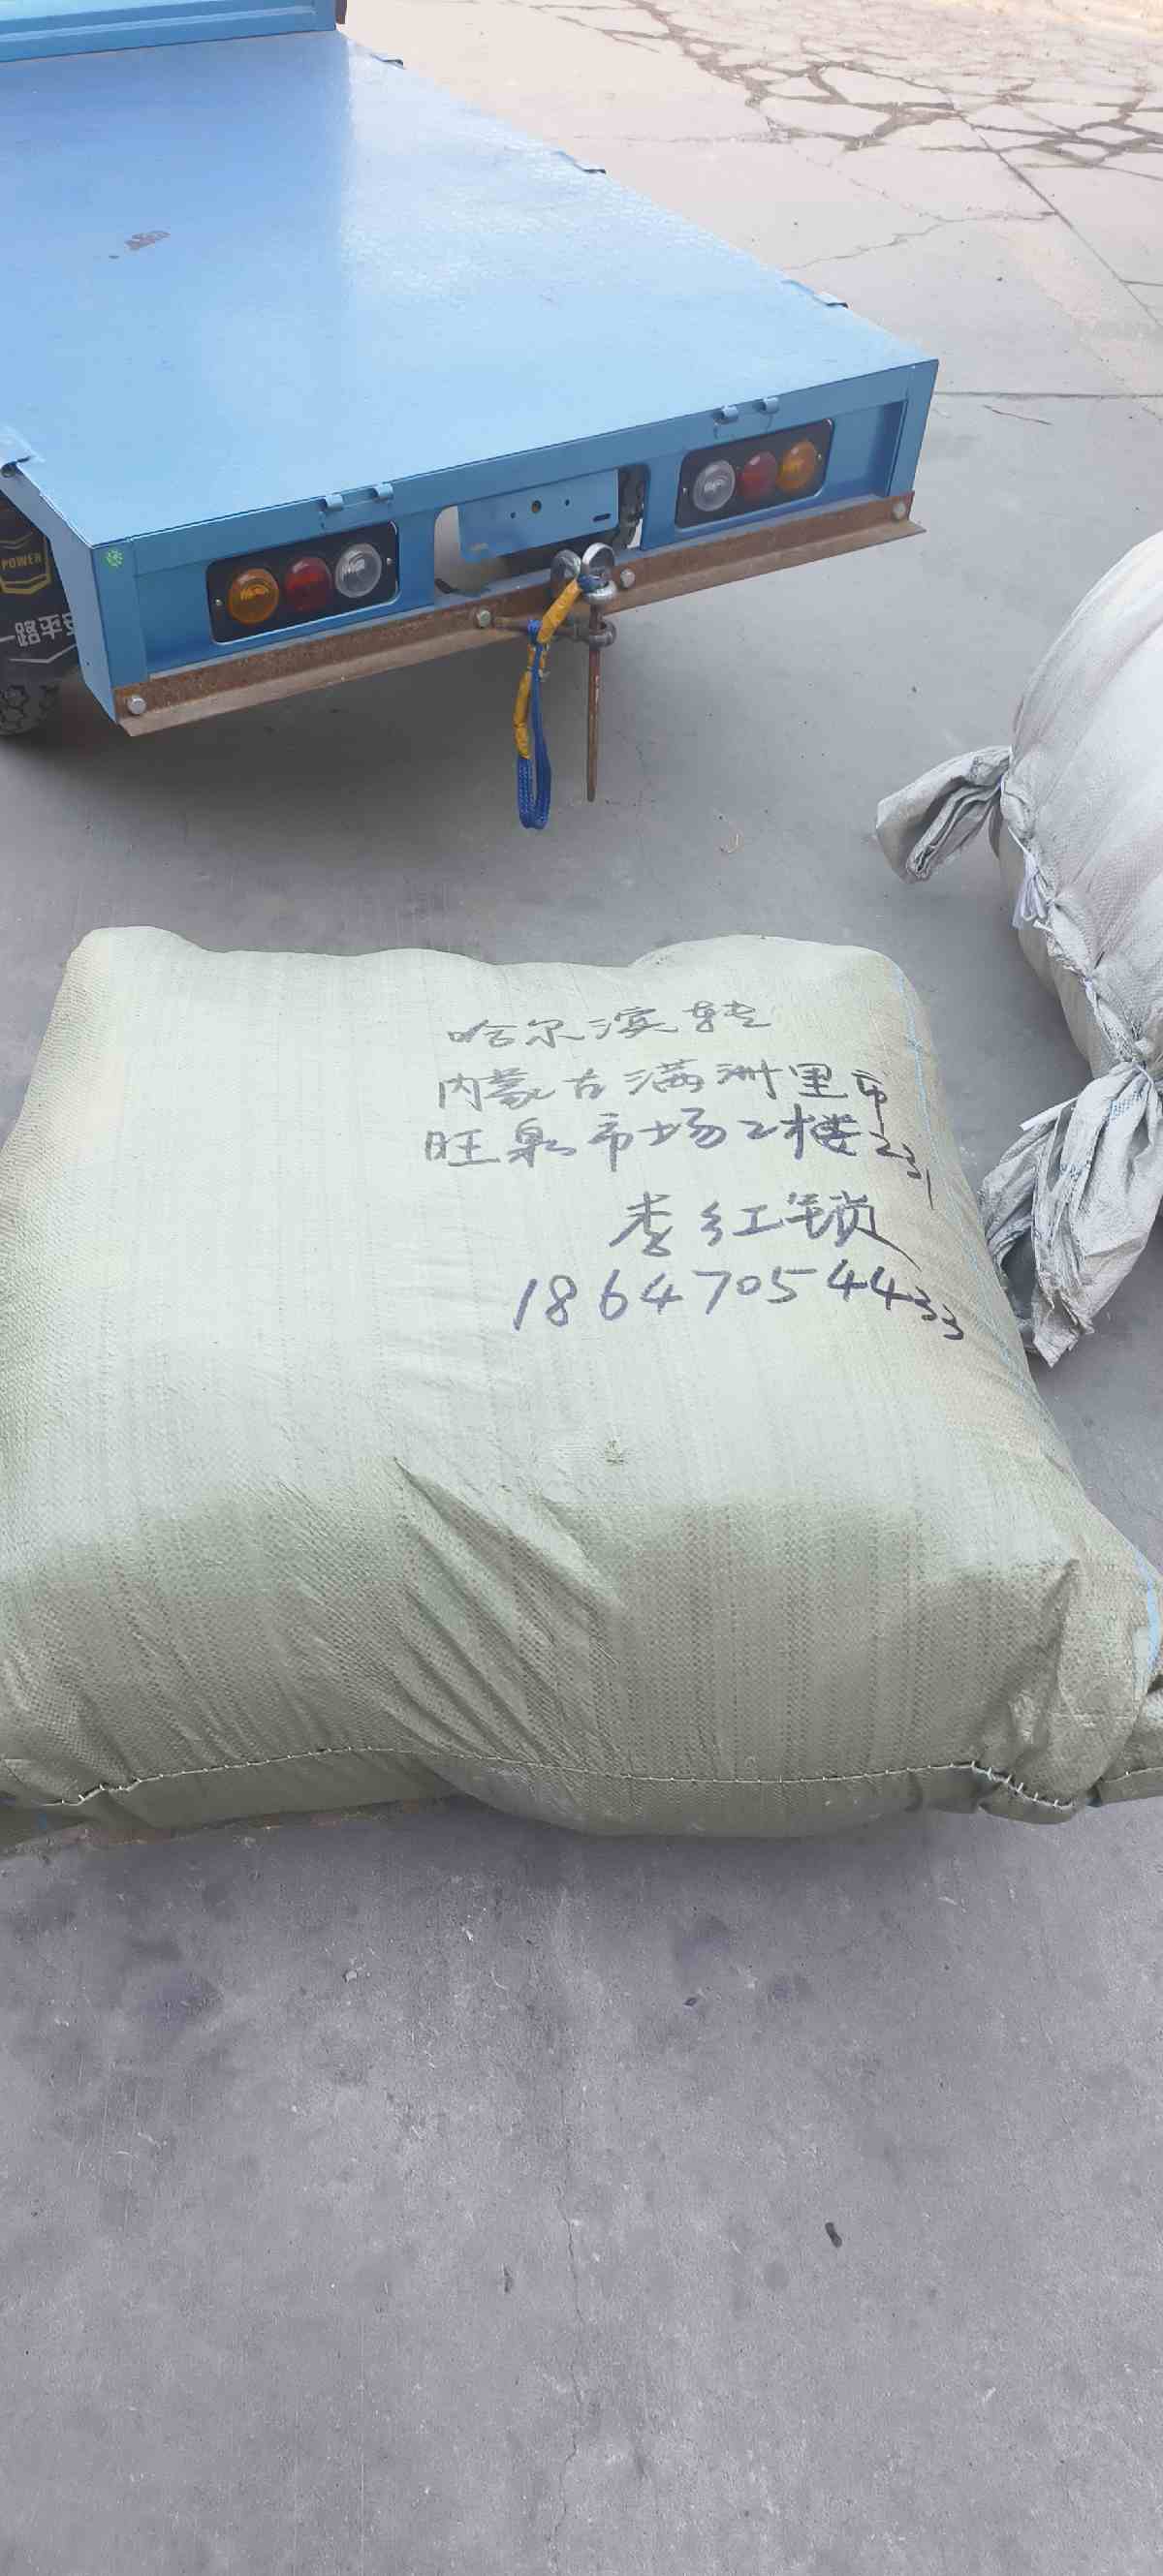 POWER
一路走
哈尔滨转
内蒙古满洲里市
旺泉市场2楼231
李红锁
18647054433